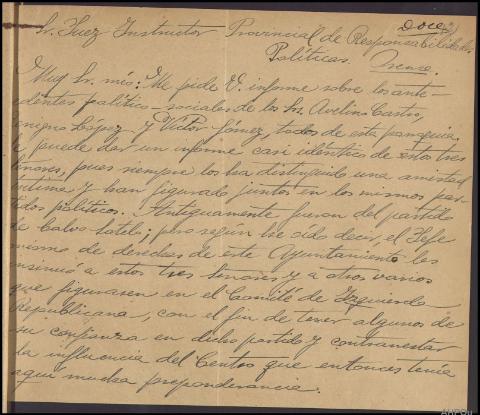 Doce
Sr. Juez Instructor Provincial de Responsabilidades
Políticas. Orense.
Muy Sr. mío: Me pide V. informe sobre los ante-
cedentes político-sociales de los Sr. Avelino Castro,
enigno López y Víctor Gómez, todos de esta parroquia.
e puede dar un informe casi idéntico de estos tres
señores, pues siempre los ha distinguido una amistad
íntima y han figurado juntos en los mismos par-
tidos políticos. Antiguamente fueron del partido
de Calvo Sotelo; pero según he oído decir, el Jefe
mismo de derechas de este Ayuntamiento les
insinuó a estos tres señores y a otros varios
que figurasen en el Comité de Izquierda
Republicana, con el fin de tener algunos de
su confianza en dicho partido y contrarrestar
la influencia del Centro que entonces tenía
aquí mucha preponderancia.